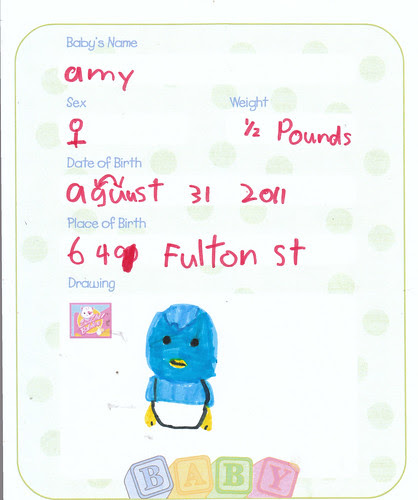 Baby's Name
amy
Sex Weight
♀ ½ Pounds
Date of Birth
aguust 31 2011
Place of Birth
Fulton st
Drawing
BABY